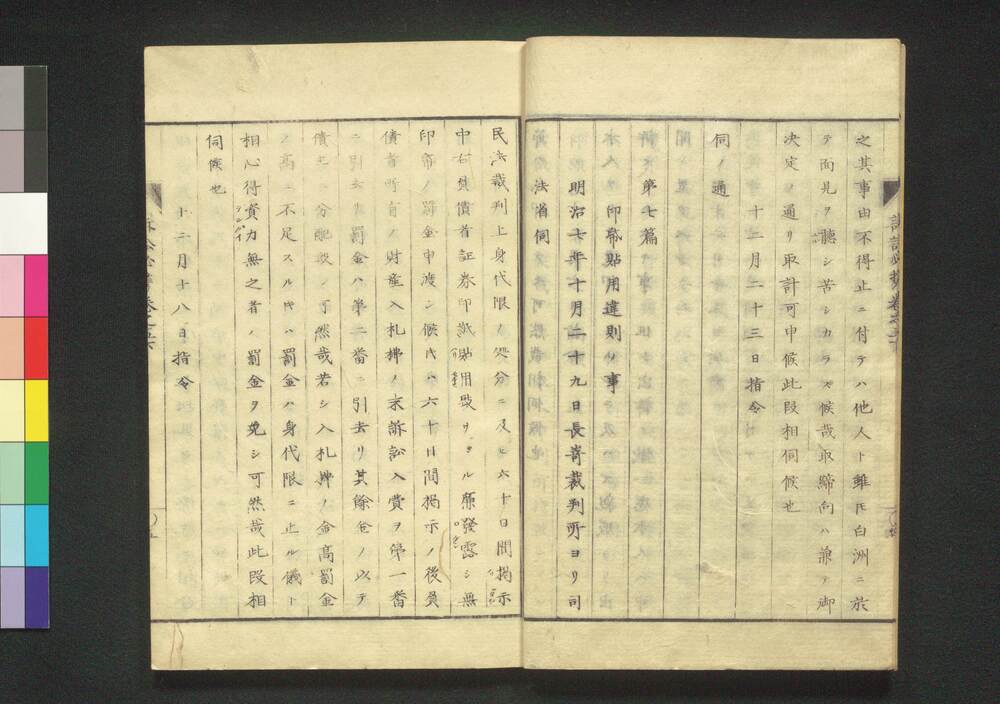 之其事由不得止ニ付テハ他人ト雖𪜈白洲ニ於
テ面見ヲ聽シ苦シカラス候哉取締向ハ兼テ御
決定ノ通リ取計可申候此段相伺候也
十二月二十三日指令
伺ノ通
第七篇
印紙貼用違則ノ事
明治七年十月二十九日長嵜裁判所ヨリ司
法省伺
民法裁判上身代限ノ処分ニ及ヒ六十日間揭示
中右負債者証券印紙貼用セサル廉發露シ無
印帋ノ罰金申渡シ候𪜈六十日間揭示ノ後負
債者所有ノ財産入札拂ノ末訴訟入費ヲ第一番
ニ引去リ罰金ハ第二番ニ引去リ其餘金ノ以テ
債主ニ分配致シ可然哉若シ入札拂ノ金高罰金
ノ高ニ不足スル𪜈ハ罰金ハ身代限ニ止ル儀ト
相心得資力無之者ノ罰金ヲ免シ可然哉此段相
伺候也
十二月十八日指令